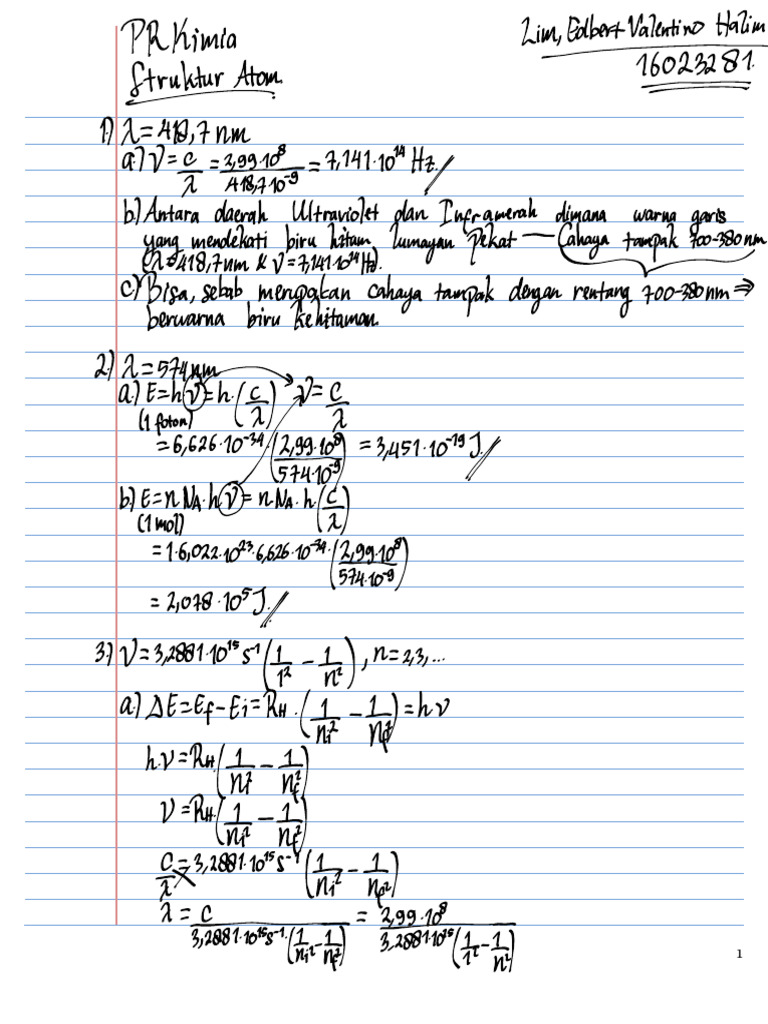 PR Kimia
Struktur Atom.
Lim, Edbert Valentino Halim
16023281.
1) λ = 418,7 nm
a.) ν = c/λ = 2,99·10⁸/418,7·10⁻⁹ = 7,141·10¹⁴ Hz.
b.) Antara daerah Ultraviolet dan Inframerah dimana warna garis
yang mendekati biru hitam lumayan pekat — Cahaya tampak 700-380 nm
(λ = 418,7 nm & ν = 7,141·10¹⁴ Hz).
c.) Bisa, sebab merupakan cahaya tampak dengan rentang 700-380 nm ⇒
berwarna biru kehitaman.
2.) λ = 574 nm
a.) E = hν = h·(c/λ) ν = c/λ
(1 foton)
= 6,626·10⁻³⁴·(2,99·10⁸/574·10⁻⁹) = 3,451·10⁻¹⁹ J.
b.) E = n·N_A·h·ν = n·N_A·h·(c/λ)
(1 mol)
= 1·6,022·10²³·6,626·10⁻³⁴·(2,99·10⁸/574·10⁻⁹)
= 2,078·10⁵ J.
3.) ν = 3,2881·10¹⁵ s⁻¹ (1/1² − 1/n²), n = 2,3,...
a.) ΔE = E_f − E_i = R_H·(1/n_i² − 1/n_f²) = hν
h·ν = R_H·(1/n_i² − 1/n_f²)
ν = R_H·(1/n_i² − 1/n_f²)
c/λ = 3,2881·10¹⁵ s⁻¹ (1/n_i² − 1/n_f²)
λ = c/3,2881·10¹⁵ s⁻¹·(1/n_i² − 1/n_f²) = 2,99·10⁸/3,2881·10¹⁵ (1/1² − 1/n²)
1